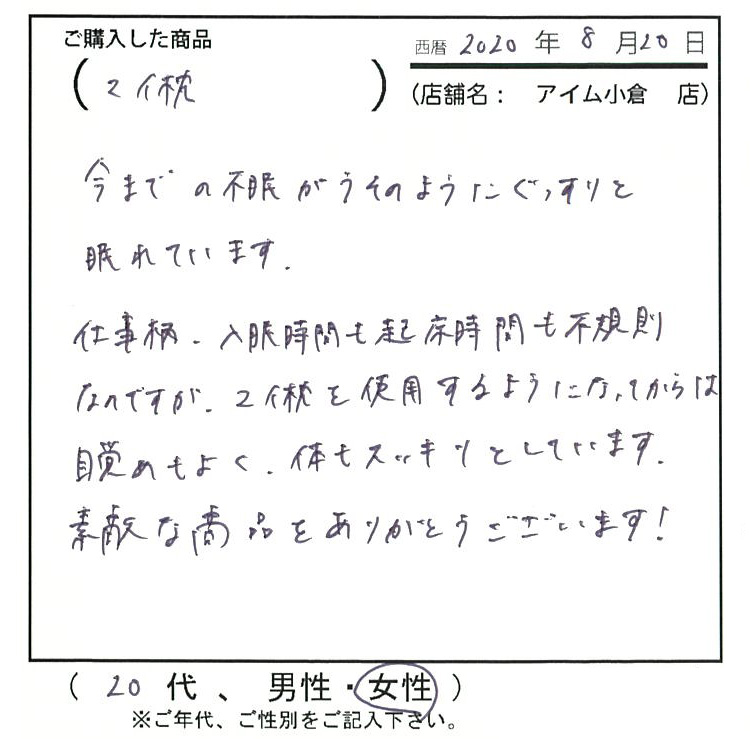 ご購入した商品
西暦 2020 年 8 月 20 日
( マイ枕 )
(店舗名: アイム小倉 店)
今までの不眠がうそのようにぐっすりと
眠れています.
仕事柄、入眠時間も起床時間も不規則
なのですが、マイ枕を使用するようになってからは
目覚めもよく、体もスッキリとしています.
素敵な商品をありがとうございます!
( 20 代 、 男性・女性 )
※ご年代、ご性別をご記入下さい。